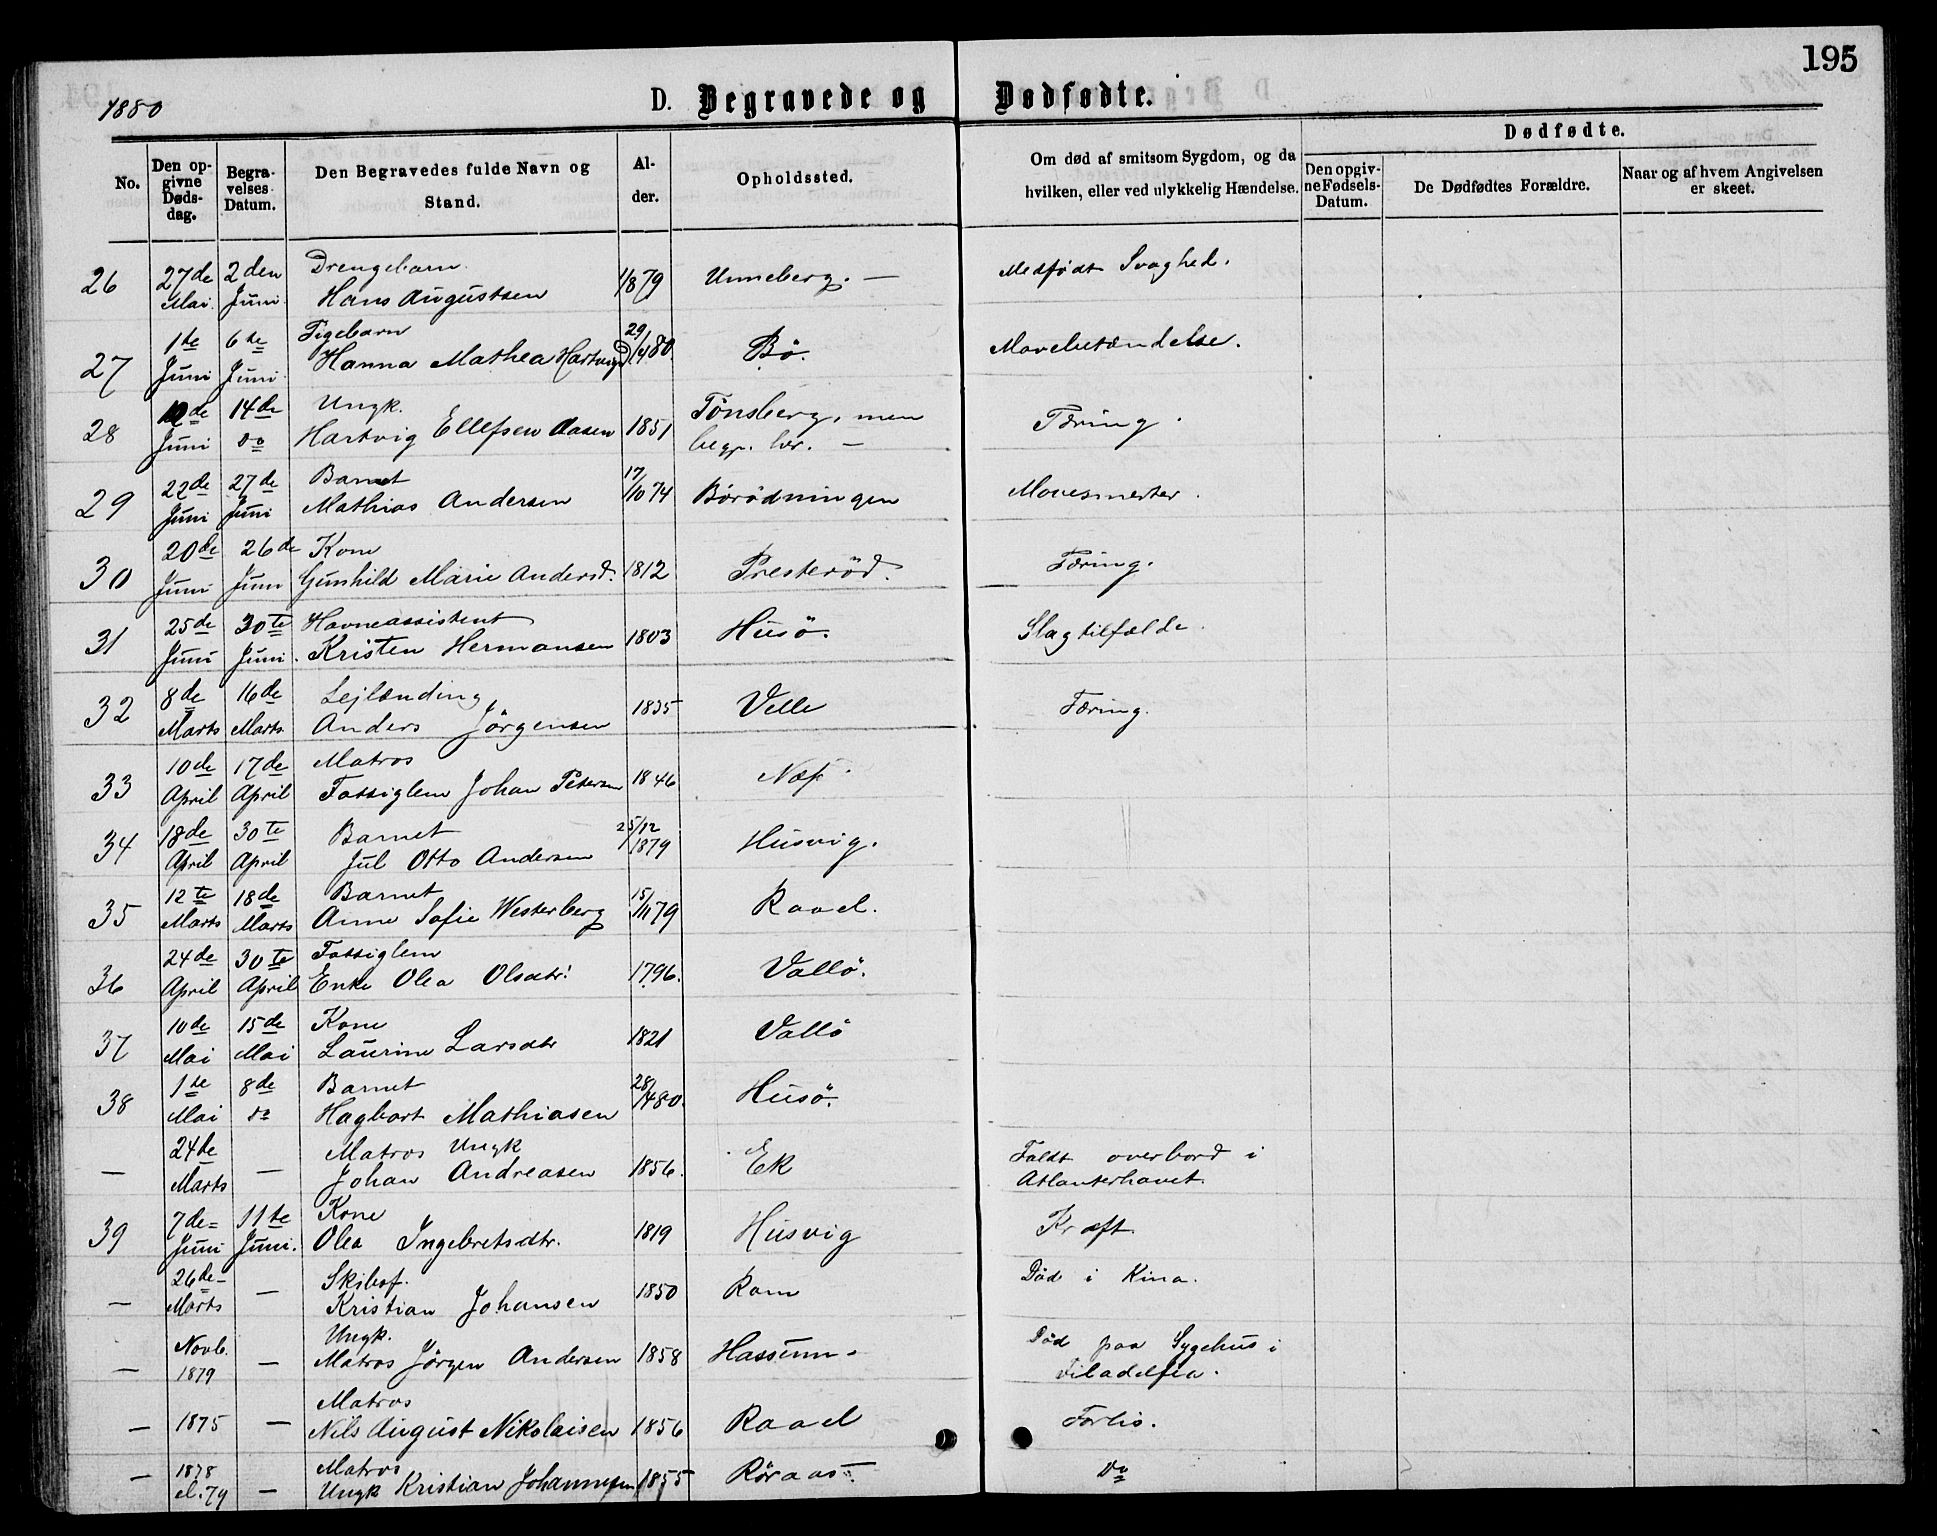 195
1880
D. Begravede og Dødfødte.
No.
Den opgivne Dødsdag.
Begravelses Datum.
Den Begravedes fulde Navn og Stand.
Alder.
Opholdssted.
Om død af smitsom Sygdom, og da hvilken, eller ved ulykkelig Hændelse.
Dødfødte.
Den opgivne Fødsels-Datum.
De Dødfødtes Forældre.
Naar og af hvem Angivelsen er skeet.
26 27de Mai 2den Juni Drengebarn Hans Augustsen 1/8 79 Unneberg. — Medfødt Svaghed.
27 1te Juni 6te Juni Pigebarn Hanna Mathea Hartvigsd. 29/4 80. Bø. Mavebetændelse.
28 12de Juni 14de do Ungk. Hartvig Ellefsen Aasen 1851 Tönsberg, men begr. her. — Tæring.
29 22de Juni 27de Juni Barnet Mathias Andersen 17/10 74 Börödningen Mavesmerter.
30 20de Juni 26de Juni Kone Gunhild Marie Andersd. 1812 Presteröd. Tæring.
31 25de Juni 30te Juni. Havneassistent Kristen Hermansen 1803 Husö. Slagtilfælde.
32 8de Marts 16de Marts Lejlænding Anders Jörgensen 1835 Velle Tæring.
33 10de April 17de April Matros Fattiglem Johan Petersen 1846 Næs
34 18de April 30te April Barnet Jul Otto Andersen 25/12 1879 Husvig.
35 12te Marts 18de Marts Barnet Anne Sofie Westerberg 15/11 79 Raael.
36 24de April 30te April Fattiglem Enke Olea Olsdtr. 1796. Vallö.
37 10de Mai 15de Mai Kone Laurine Larsdtr 1821 Vallö
38 1te Mai 8de do Barnet Hagbart Mathiasen 28/4 80. Husö.
— 24de Marts — Matros Ungk Johan Andreasen 1856. Ek Faldt overbord i Atlanterhavet.
39 7de Juni 11te Juni. Kone Olea Ingebretsdtr. 1819 Husvig Kræft.
— 26de Marts — Skibsf. Kristian Johansen 1850 Ram Död i Kina.
— Novb. 1879 — Ungk. Matros Jörgen Andersen 1858 Hassum. Död paa Sygehus i Filadelfia.
— 1875 — Matros Nils August Nikolaisen 1856 Raael Forlis.
— 1878 el. 79 — Matros Ungk Kristian Johannesen 1855 Röraas do